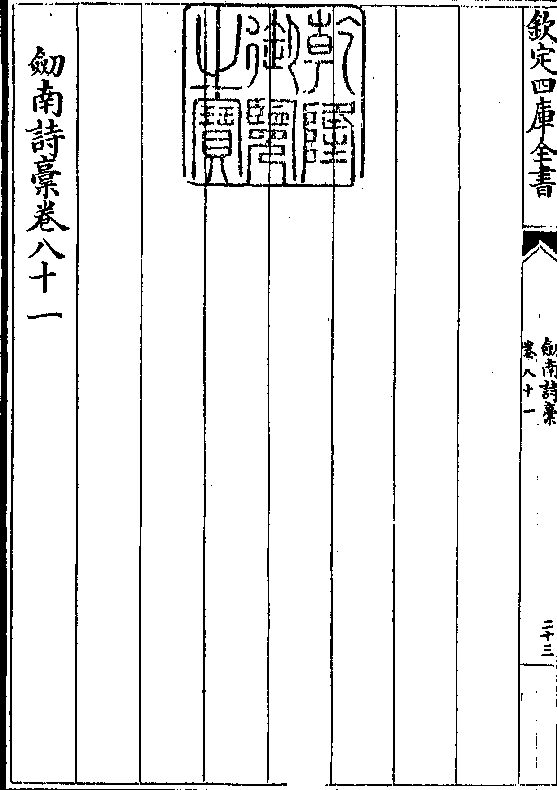 欽定四庫全書
劒南詩稾
卷八十一
二十三
乾隆
御覽
之寶
劒南詩稾卷八十一